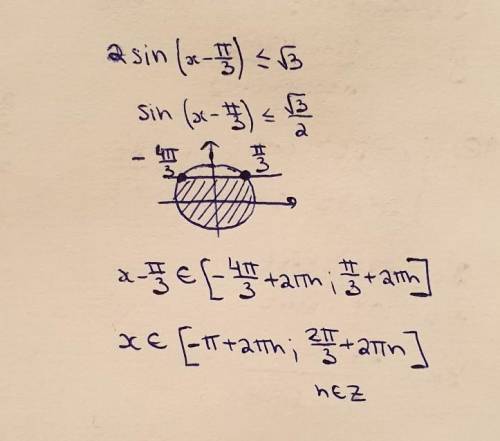 2 sin (x - π/3) ≤ √3
sin (x - π/3) ≤ √3/2
- 4π/3 π/3
x - π/3 ∈ [- 4π/3 + 2πn ; π/3 + 2πn]
x ∈ [-π + 2πn ; 2π/3 + 2πn]
n ∈ Z